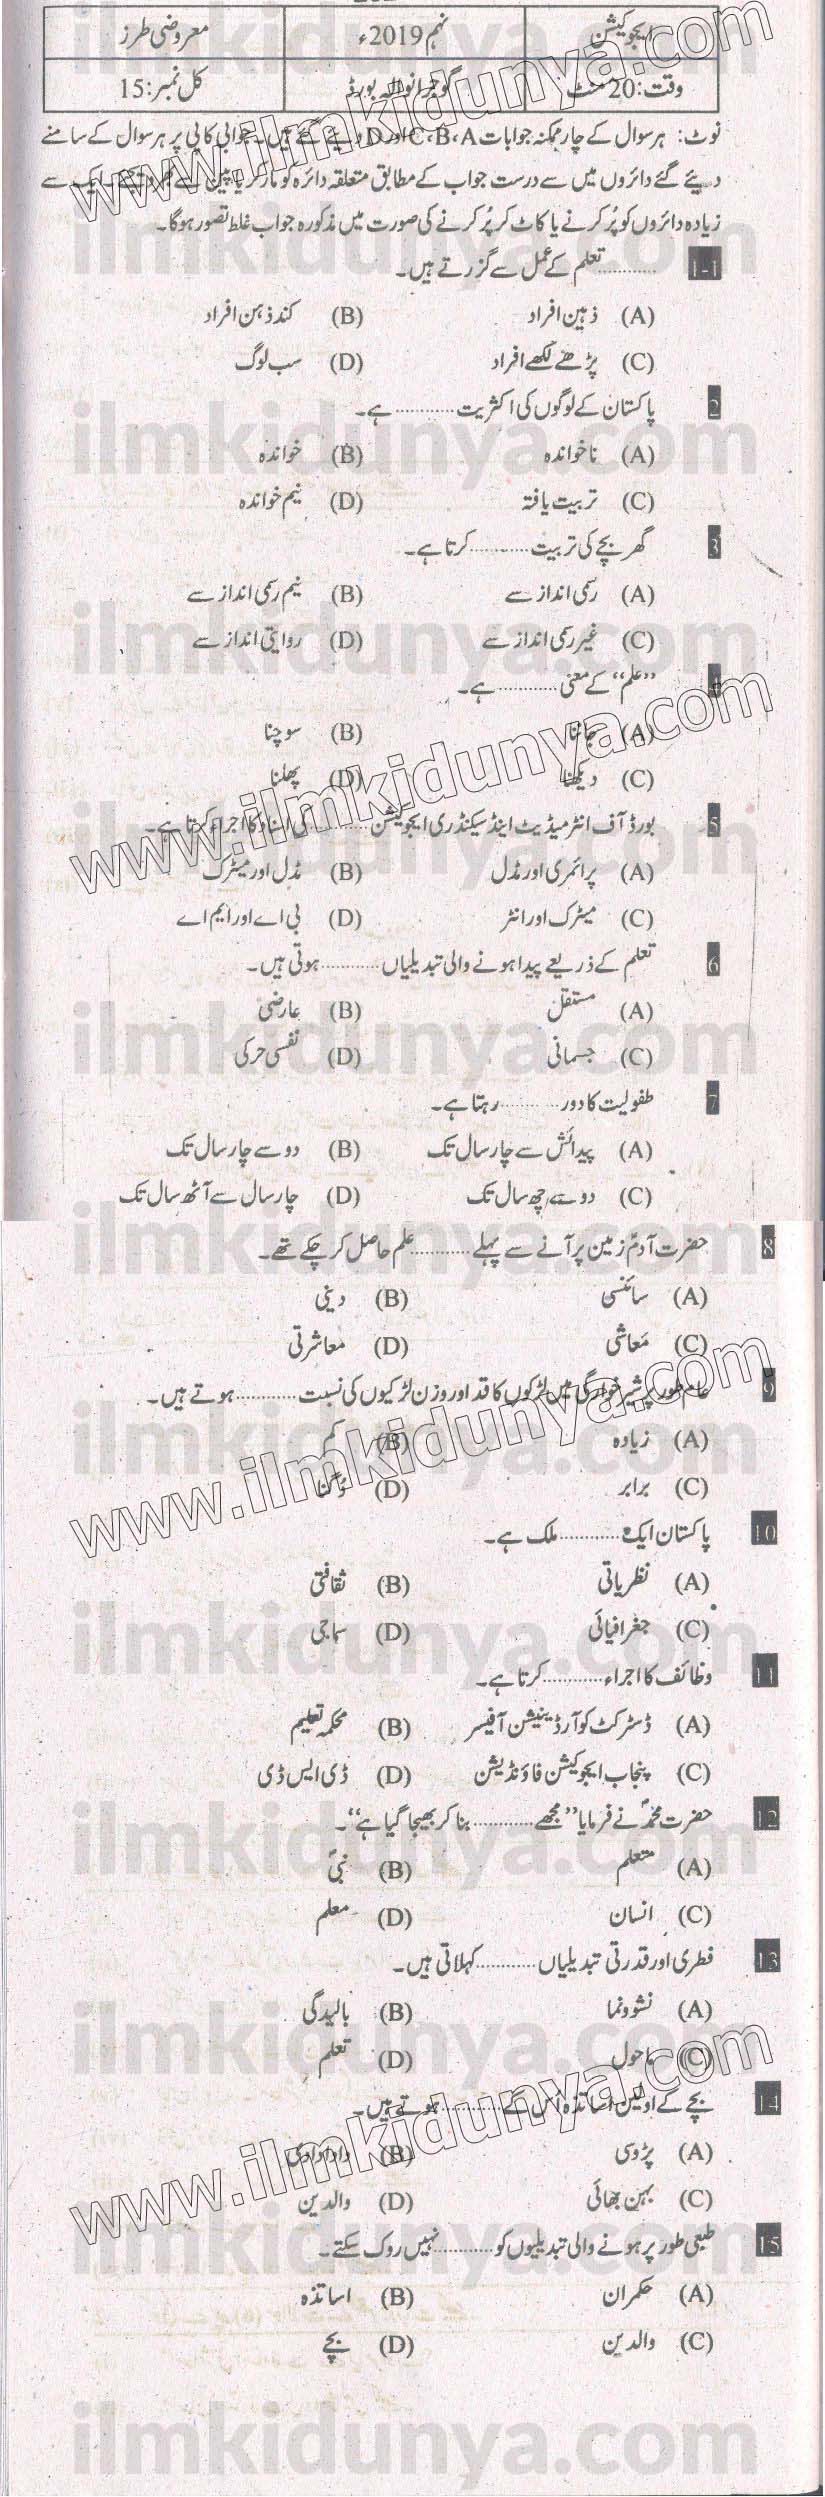 ایجوکیشن نہم 2019ء معروضی طرز
وقت: 20 منٹ گوجرانوالہ بورڈ کل نمبر: 15
نوٹ: ہر سوال کے چار ممکنہ جوابات C،B،A اور D دیئے گئے ہیں۔ جوابی کاپی پر ہر سوال کے سامنے
دیئے گئے دائروں میں سے درست جواب کے مطابق متعلقہ دائرہ کو مارکر یا پین سے بھر دیجئے۔ ایک سے
زیادہ دائروں کو پُر کرنے یا کاٹ کر پُر کرنے کی صورت میں مذکورہ جواب غلط تصور ہوگا۔
1-1 ............ تعلم کے عمل سے گزرتے ہیں۔
(A) ذہین افراد (B) کند ذہن افراد
(C) پڑھے لکھے افراد (D) سب لوگ
2 پاکستان کے لوگوں کی اکثریت ............ ہے۔
(A) ناخواندہ (B) خواندہ
(C) تربیت یافتہ (D) نیم خواندہ
3 گھر بچے کی تربیت ............ کرتا ہے۔
(A) رسمی انداز سے (B) نیم رسمی انداز سے
(C) غیر رسمی انداز سے (D) روایتی انداز سے
4 ”علم“ کے معنی ............ ہے۔
(A) جاننا (B) سوچنا
(C) دیکھنا (D) پھلنا
5 بورڈ آف انٹرمیڈیٹ اینڈ سیکنڈری ایجوکیشن ............ کی اسناد کا اجراء کرتا ہے۔
(A) پرائمری اور مڈل (B) مڈل اور میٹرک
(C) میٹرک اور انٹر (D) بی اے اور ایم اے
6 تعلم کے ذریعے پیدا ہونے والی تبدیلیاں ............ ہوتی ہیں۔
(A) مستقل (B) عارضی
(C) جسمانی (D) نفسی حرکی
7 طفولیت کا دور ............ رہتا ہے۔
(A) پیدائش سے چار سال تک (B) دو سے چار سال تک
(C) دو سے چھ سال تک (D) چار سال سے آٹھ سال تک
8 حضرت آدمؑ زمین پر آنے سے پہلے ............ علم حاصل کر چکے تھے۔
(A) سائنسی (B) دینی
(C) معاشی (D) معاشرتی
9 عام طور پر شیر خوارگی میں لڑکوں کا قد اور وزن لڑکیوں کی نسبت ............ ہوتے ہیں۔
(A) زیادہ (B) کم
(C) برابر (D) دُگنا
10 پاکستان ایک ............ ملک ہے۔
(A) نظریاتی (B) ثقافتی
(C) جغرافیائی (D) سماجی
11 وظائف کا اجراء ............ کرتا ہے۔
(A) ڈسٹرکٹ کوآرڈینیشن آفیسر (B) محکمہ تعلیم
(C) پنجاب ایجوکیشن فاؤنڈیشن (D) ڈی ایس ڈی
12 حضرت محمدؐ نے فرمایا ”مجھے ............ بنا کر بھیجا گیا ہے“۔
(A) متعلم (B) نبیؐ
(C) انسان (D) معلم
13 فطری اور قدرتی تبدیلیاں ............ کہلاتی ہیں۔
(A) نشوونما (B) بالیدگی
(C) ماحول (D) تعلم
14 بچے کے اولین اساتذہ اس کے ............ ہوتے ہیں۔
(A) پڑوسی (B) دادا دادی
(C) بہن بھائی (D) والدین
15 طبعی طور پر ہونے والی تبدیلیوں کو ............ نہیں روک سکتے۔
(A) حکمران (B) اساتذہ
(C) والدین (D) بچے
ilmkidunya.com
www.ilmkidunya.com